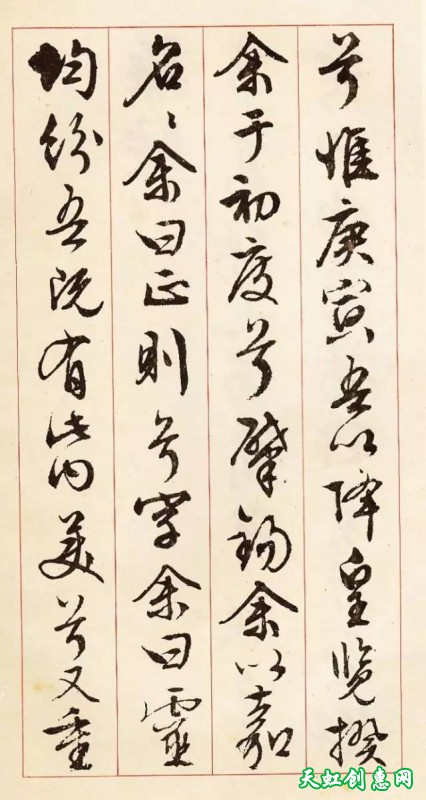 兮惟庚寅吾以降皇览揆
余于初度兮肇锡余以嘉
名名余曰正则兮字余曰灵
均纷吾既有此内美兮又重
天虹创惠网